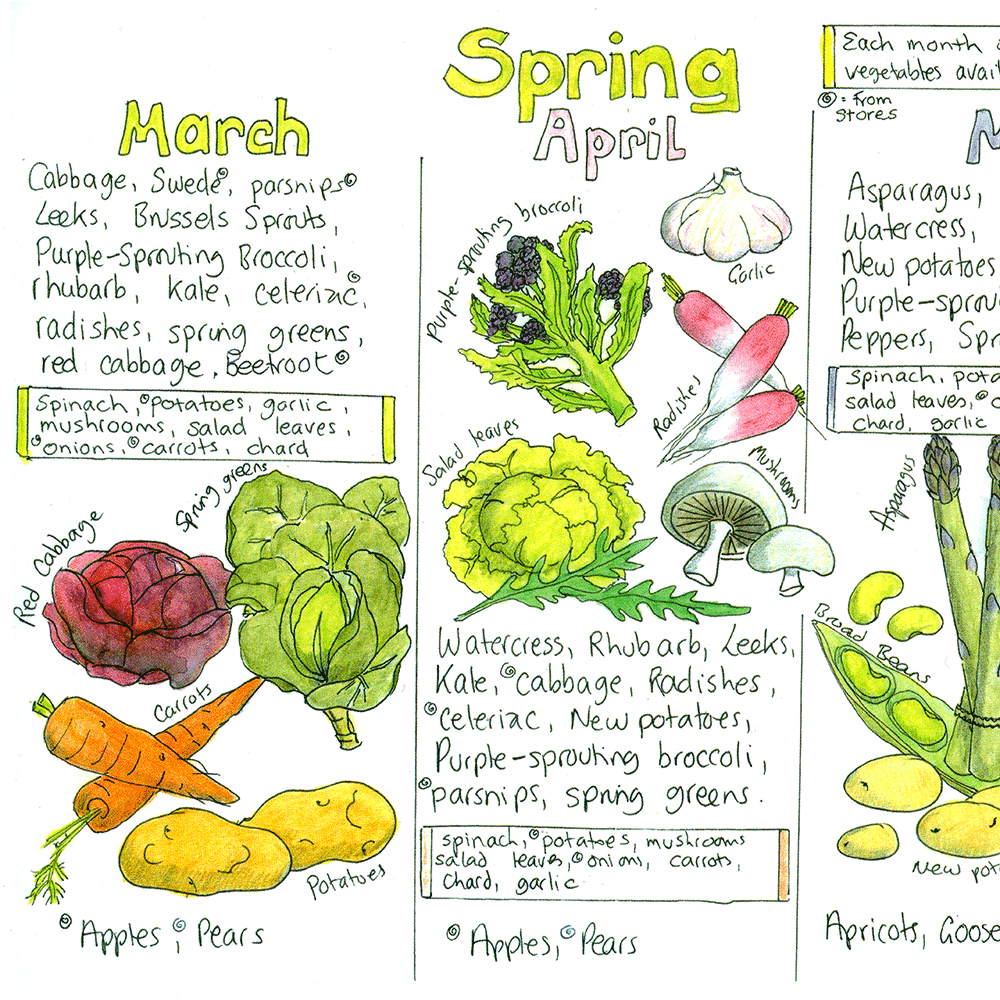 Spring
Each month
vegetables
= From
Stores
March
Cabbage, Swede, parsnips
Leeks, Brussels Sprouts,
Purple-Sprouting Broccoli,
rhubarb, kale, celeriac,
radishes, spring greens,
red cabbage, Beetroot
Spinach, potatoes, garlic,
mushrooms, salad leaves,
onions, carrots, chard
Spring greens
Red Cabbage
Carrots
Potatoes
Apples, Pears
April
Purple-sprouting broccoli
Garlic
Radishes
Salad leaves
Mushrooms
Watercress, Rhubarb, Leeks,
Kale, cabbage, Radishes,
celeriac, New potatoes,
Purple-sprouting broccoli,
parsnips, spring greens.
spinach, potatoes, mushrooms
salad leaves, onions, carrots,
Chard, garlic
Apples, Pears
Asparagus,
Watercress,
New potatoes
Purple-
Peppers,
Spinach,
salad leaves,
chard, garlic
Asparagus
Broad Beans
New
Apricots,